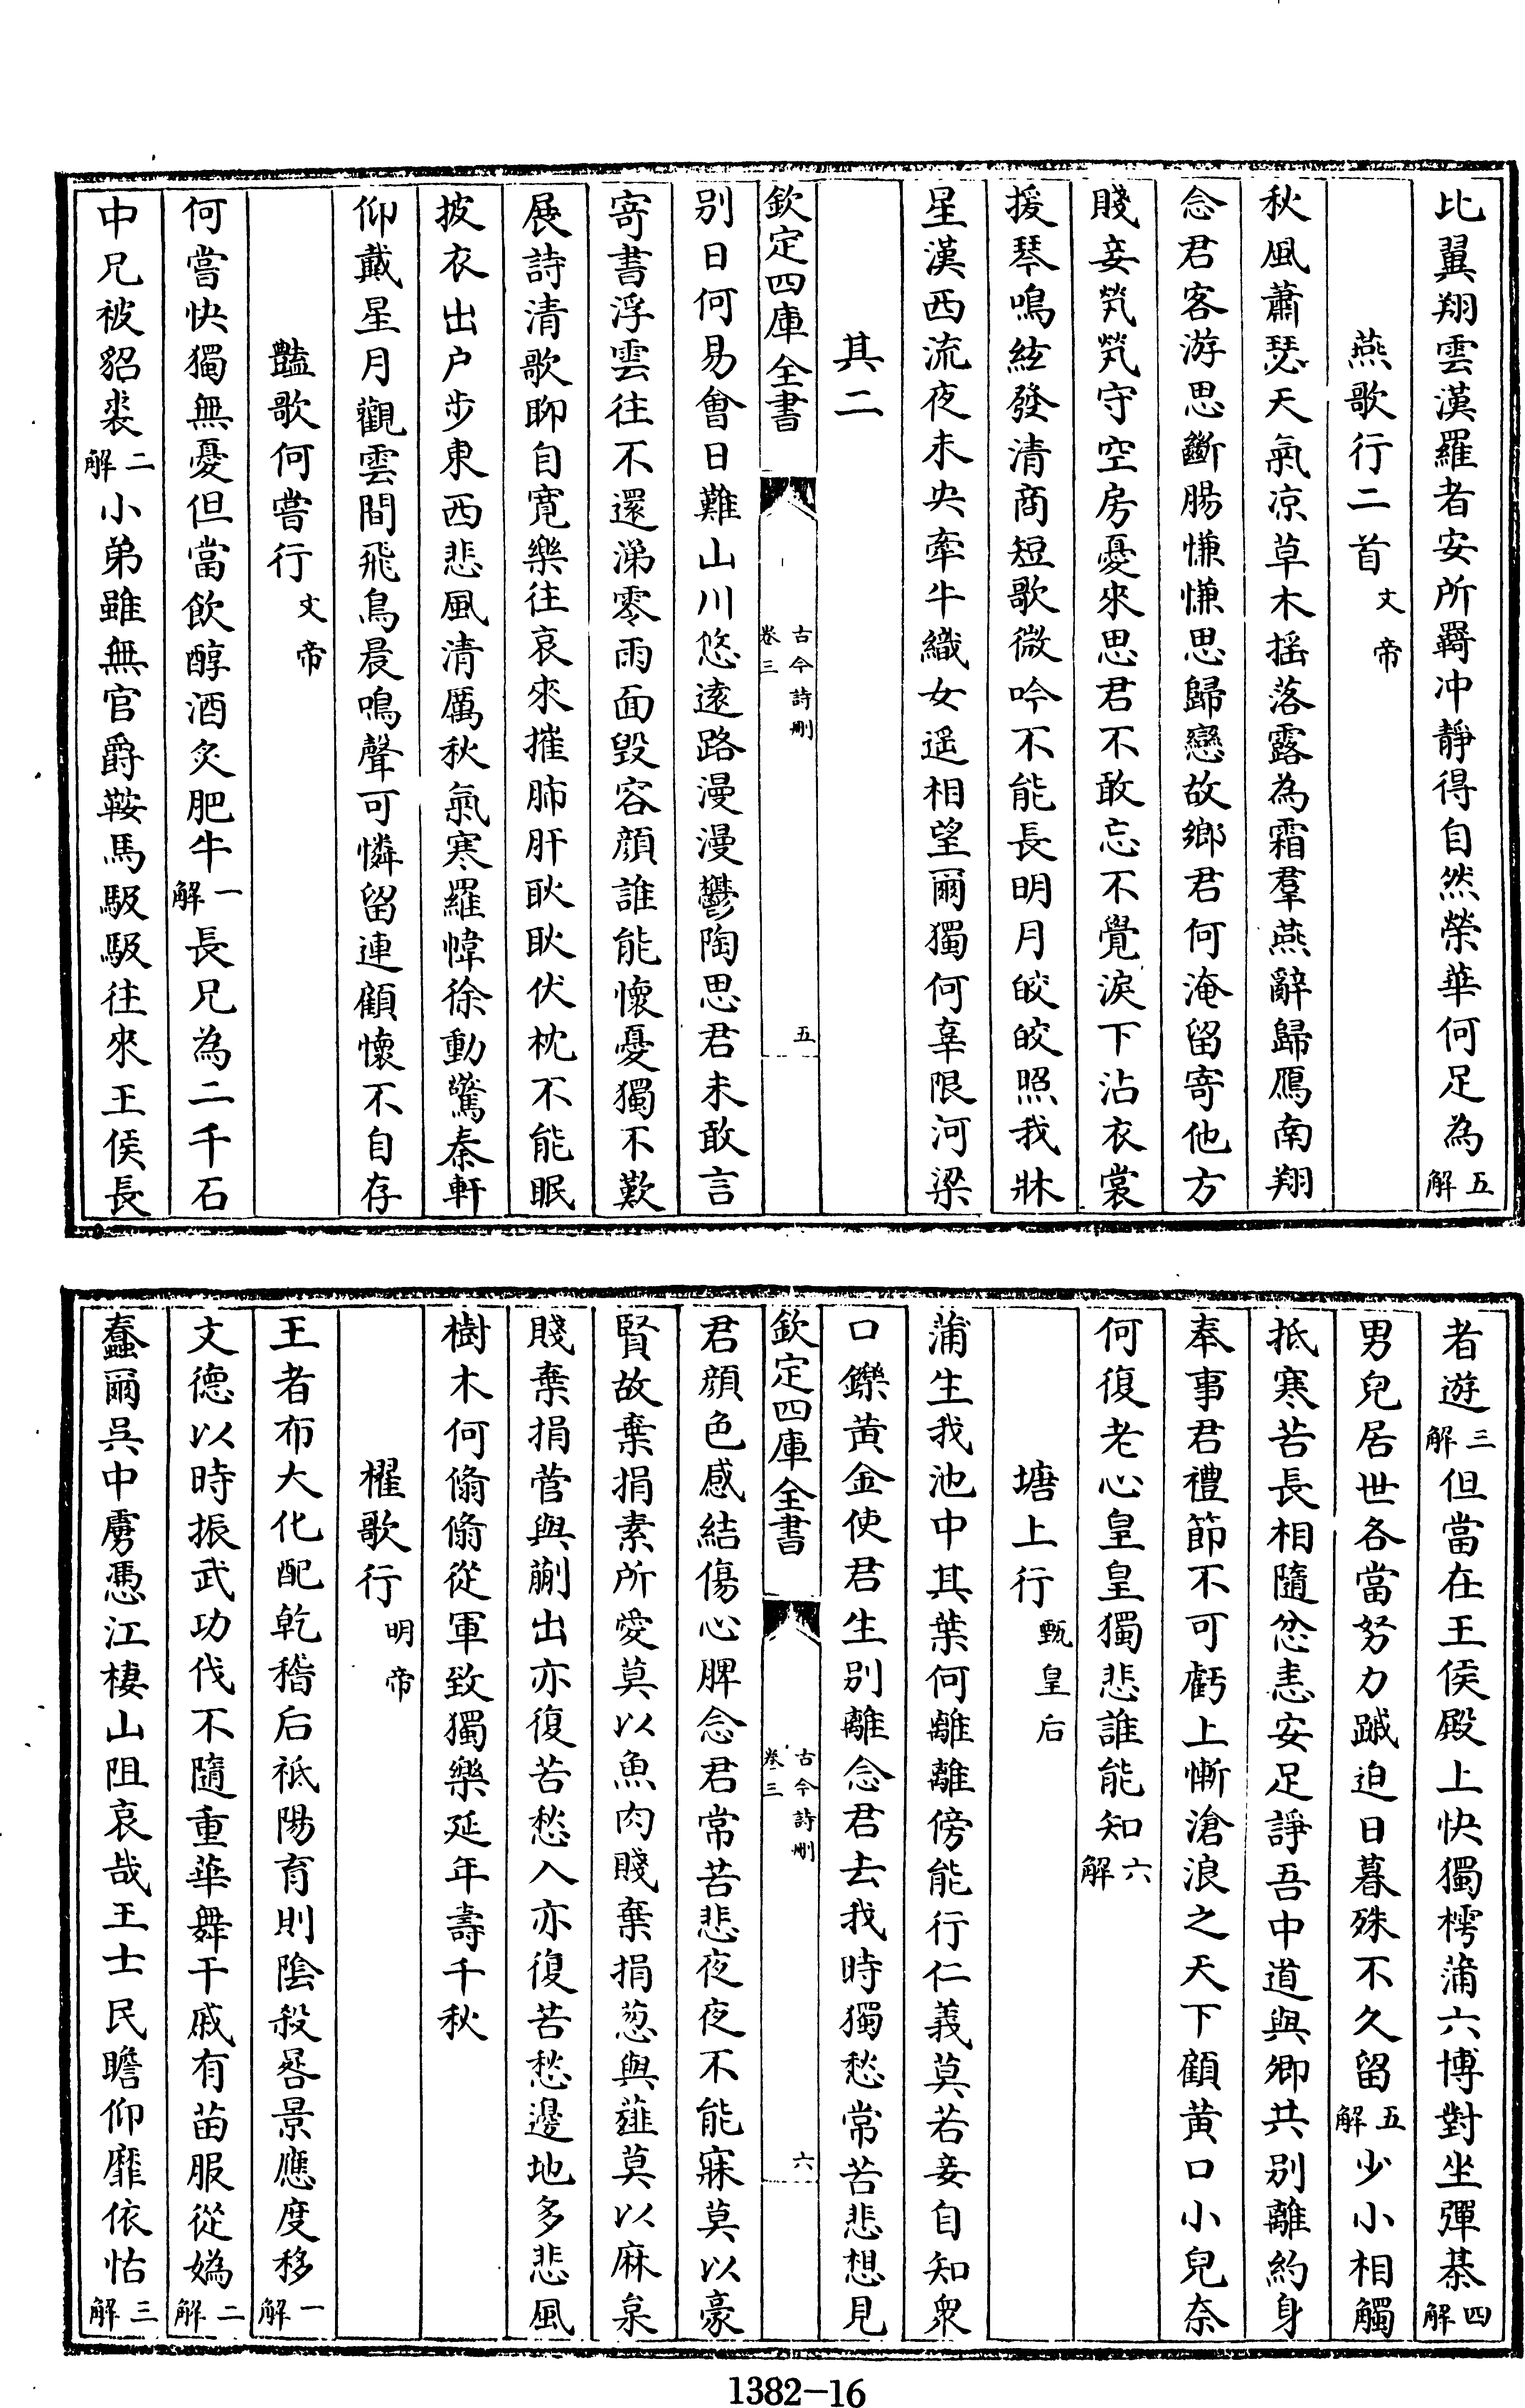 比翼翔雲漢羅者安所羇冲靜得自然榮華何足為五解
燕歌行二首文帝
秋風蕭瑟天氣凉草木揺落露為霜羣燕辭歸鴈南翔
念君客游思斷腸慊慊思歸戀故鄉君何淹留寄他方
賤妾煢煢守空房憂來思君不敢忘不覺淚下沾衣裳
援琴鳴絃發清商短歌微吟不能長明月皎皎照我牀
星漢西流夜未央牽牛織女遥相望爾獨何辜限河梁
其二
欽定四庫全書
古今詩刪
卷三
五
别日何易會日難山川悠逺路漫漫鬱陶思君未敢言
寄書浮雲往不還涕零雨面毁容顔誰能懷憂獨不歎
展詩清歌聊自寛樂往哀來摧肺肝耿耿伏枕不能眠
披衣出户步東西悲風清厲秋氣寒羅幃徐動驚秦軒
仰戴星月觀雲間飛鳥晨鳴聲可憐留連顧懷不自存
豔歌何嘗行文帝
何嘗快獨無憂但當飲醇酒炙肥牛一解長兄為二千石
中兄被貂裘二解小弟雖無官爵鞍馬馺馺往來王侯長
者遊三解但當在王侯殿上快獨樗蒲六博對坐彈棊四解
男兒居世各當努力蹴迫日暮殊不久留五解少小相觸
抵寒苦長相隨忿恚安足諍吾中道與卿共别離約身
奉事君禮節不可虧上慚滄浪之天下顧黄口小兒奈
何復老心皇皇獨悲誰能知六解
塘上行甄皇后
蒲生我池中其葉何離離傍能行仁義莫若妾自知衆
口鑠黄金使君生别離念君去我時獨愁常苦悲想見
欽定四庫全書
古今詩刪
卷三
六
君顔色感結傷心脾念君常苦悲夜夜不能寐莫以豪
賢故棄捐素所愛莫以魚肉賤棄捐葱與薤莫以麻枲
賤棄捐菅與蒯出亦復苦愁入亦復苦愁邊地多悲風
樹木何翛翛從軍致獨樂延年壽千秋
櫂歌行明帝
王者布大化配乾稽后祗陽育則隂殺晷景應度移一解
文德以時振武功伐不隨重華舞干戚有苗服從媯二解
蠢爾吳中虜憑江棲山阻哀哉王士民瞻仰靡依怙三解
1382-16